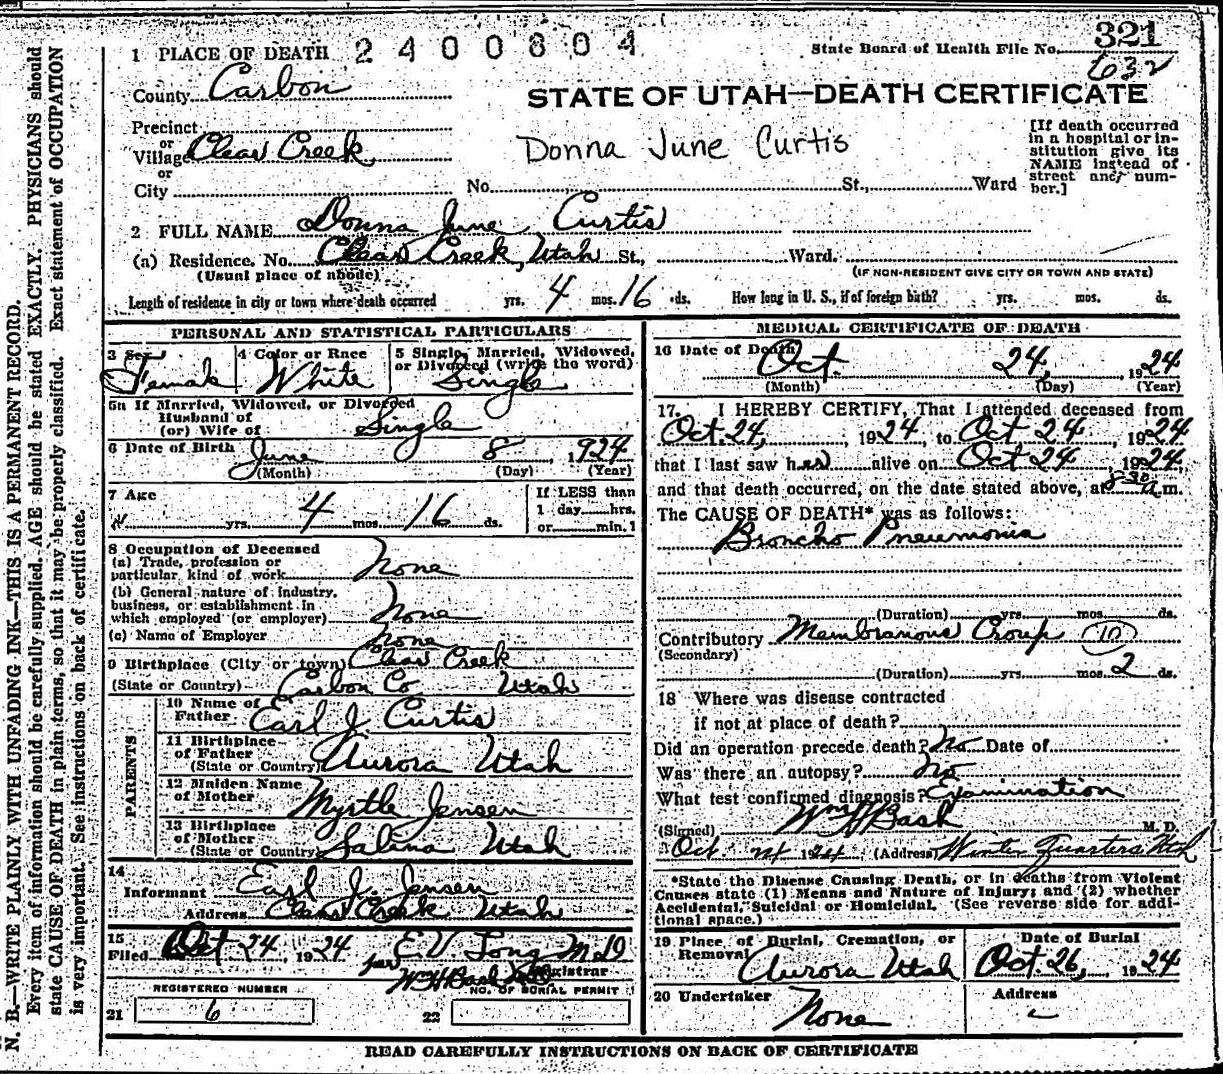 321
1 PLACE OF DEATH 2400804 State Board of Health File No.
632
County Carbon
STATE OF UTAH—DEATH CERTIFICATE
Precinct
or
Village Clear Creek
or
City No. St., Ward
Donna June Curtis
[If death occurred
in a hospital or in-
stitution give its
NAME instead of
street and num-
ber.]
2 FULL NAME Donna June Curtis
(a) Residence. No. Clear Creek, Utah St., Ward.
(Usual place of abode) (IF NON-RESIDENT GIVE CITY OR TOWN AND STATE)
Length of residence in city or town where death occurred yrs. 4 mos. 16 ds. How long in U. S., if of foreign birth? yrs. mos. ds.
PERSONAL AND STATISTICAL PARTICULARS
3 Sex Female
4 Color or Race White
5 Single, Married, Widowed,
or Divorced (write the word)
Single
5a If Married, Widowed, or Divorced
Husband of
(or) Wife of Single
6 Date of Birth June 8, 1924
(Month) (Day) (Year)
7 Age
yrs. 4 mos. 16 ds.
If LESS than
1 day hrs.
or min.
8 Occupation of Deceased
(a) Trade, profession or
particular kind of work None
(b) General nature of industry,
business, or establishment in
which employed (or employer) None
(c) Name of Employer None
9 Birthplace (City or town) Clear Creek
(State or Country) Carbon Co Utah
PARENTS
10 Name of
Father Earl J. Curtis
11 Birthplace
of Father
(State or Country) Aurora Utah
12 Maiden Name
of Mother Myrtle Jensen
13 Birthplace
of Mother
(State or Country) Salina Utah
14
Informant Earl J. Jensen
Address Clear Creek Utah
15
Filed Oct 24, 1924 E V Long M D
per W H Bash Registrar
REGISTERED NUMBER NO. OF BURIAL PERMIT
21 6 22
MEDICAL CERTIFICATE OF DEATH
16 Date of Death
Oct. 24, 1924
(Month) (Day) (Year)
17. I HEREBY CERTIFY, That I attended deceased from
Oct. 24, 1924 to Oct 24 1924
that I last saw her alive on Oct 24 1924,
and that death occurred, on the date stated above, at 8 30 a.m.
The CAUSE OF DEATH* was as follows:
Broncho Pneumonia
(Duration) yrs. mos. ds.
Contributory Membranous Croup (10)
(Secondary)
(Duration) yrs. mos. 2 ds.
18 Where was disease contracted
if not at place of death?
Did an operation precede death? No Date of
Was there an autopsy? No
What test confirmed diagnosis? Examination
(Signed) Wm H Bash M. D.
Oct 24 1924 (Address) Winter Quarters Utah
*State the Disease Causing Death, or in deaths from Violent
Causes state (1) Means and Nature of Injury; and (2) whether
Accidental, Suicidal or Homicidal. (See reverse side for addi-
tional space.)
19 Place of Burial, Cremation, or
Removal
Aurora Utah
Date of Burial
Oct. 26, 1924
20 Undertaker
None
Address
READ CAREFULLY INSTRUCTIONS ON BACK OF CERTIFICATE
N. B.—WRITE PLAINLY WITH UNFADING INK—THIS IS A PERMANENT RECORD.
Every item of information should be carefully supplied. AGE should be stated EXACTLY. PHYSICIANS should
state CAUSE OF DEATH in plain terms, so that it may be properly classified. Exact statement of OCCUPATION
is very important. See instructions on back of certificate.